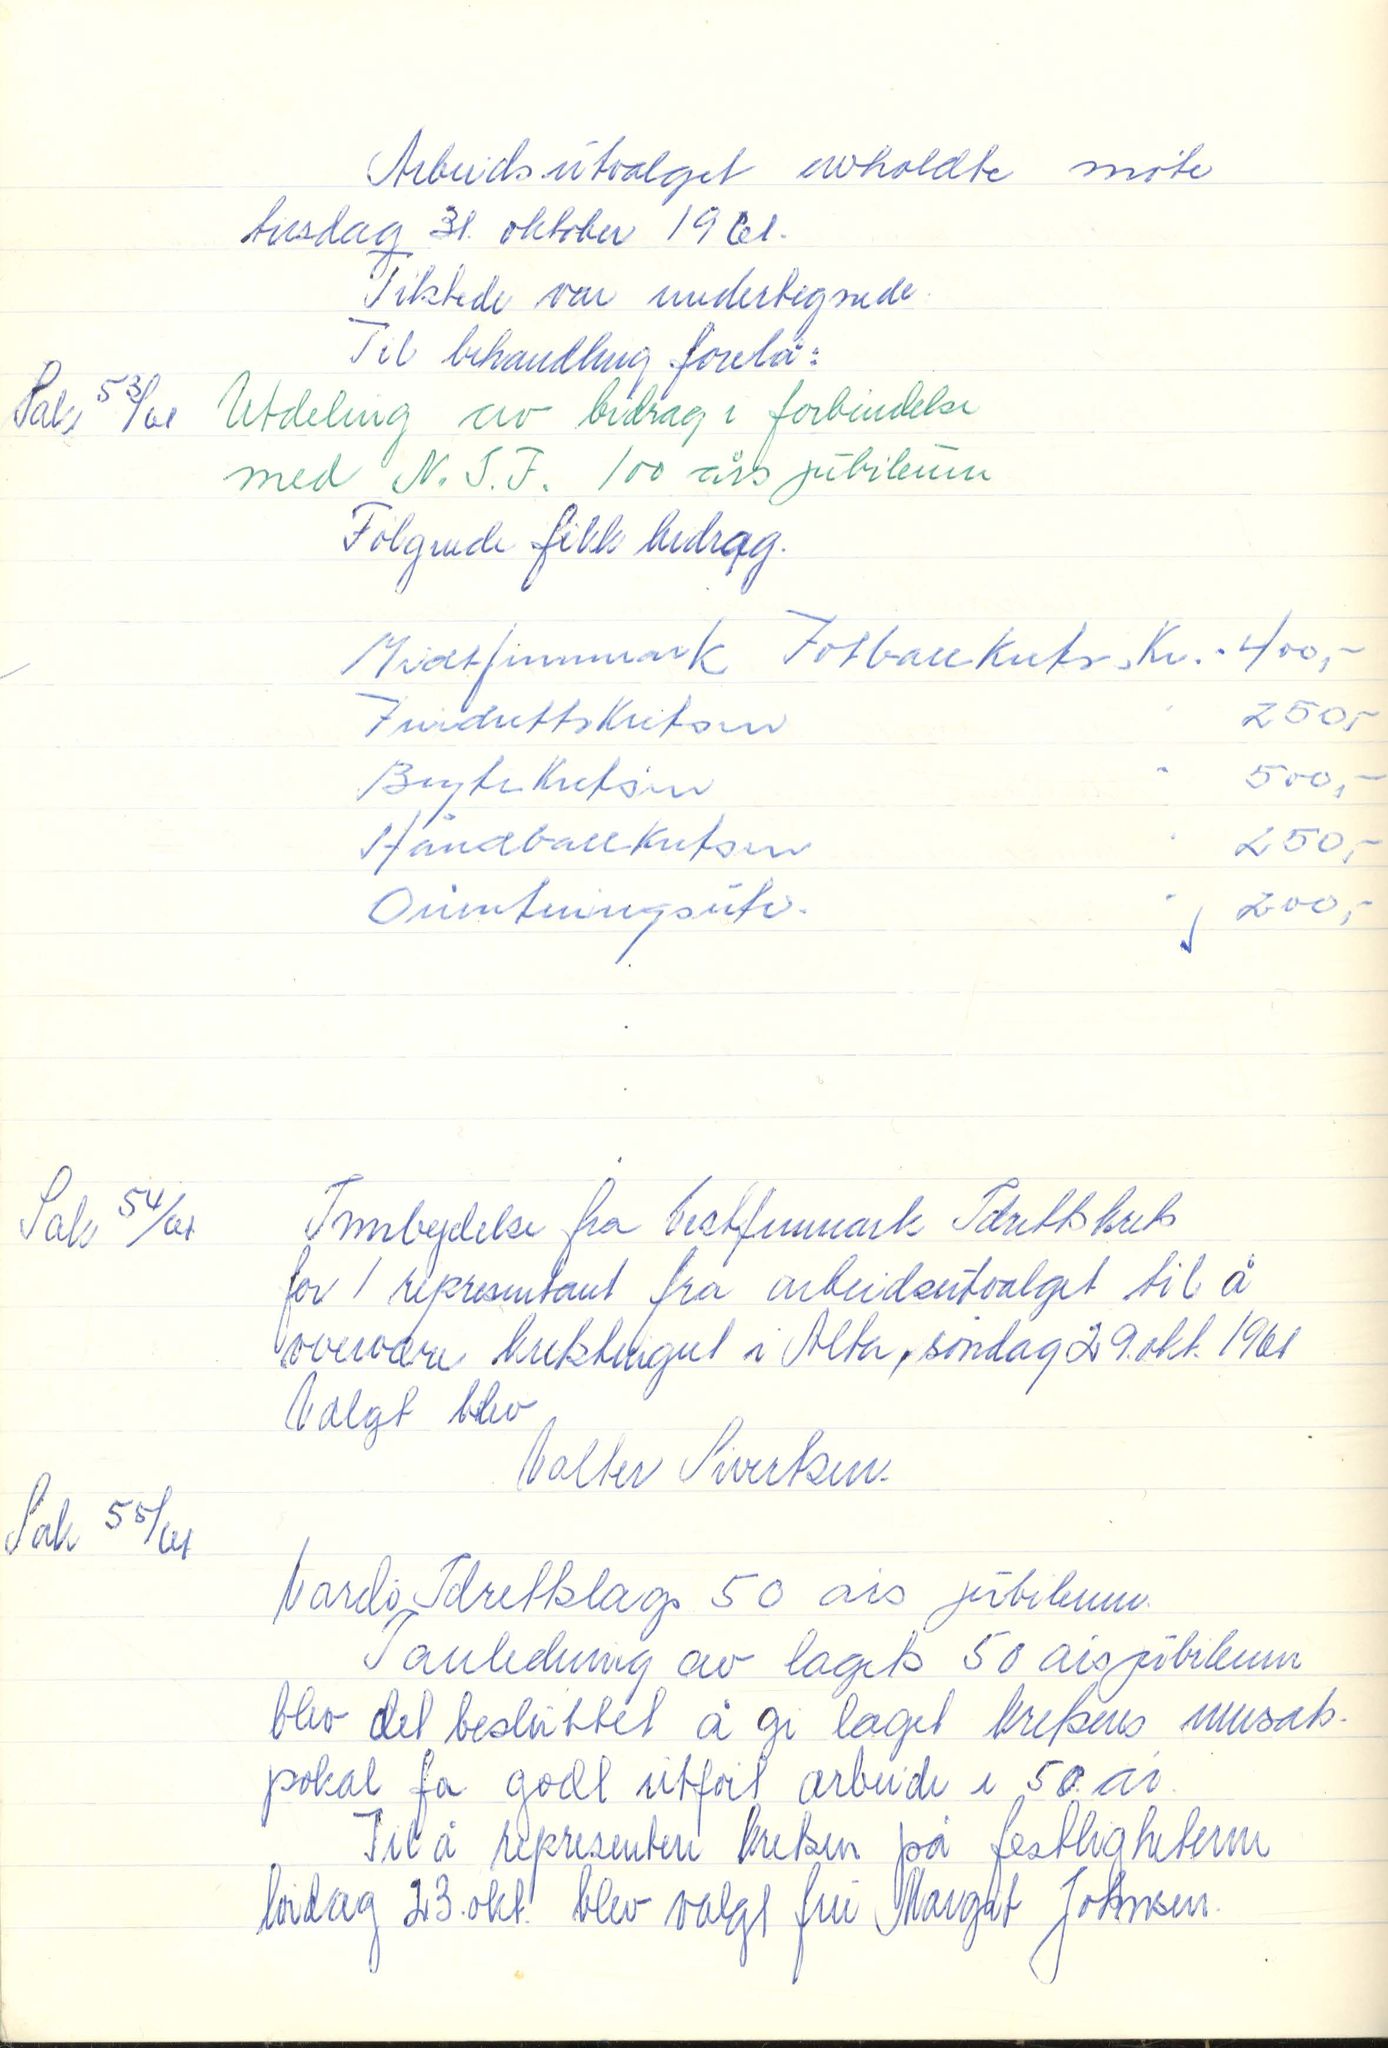 Arbeidsutvalget avholdte møte
tirsdag 31. oktober 1961.
Tilstede var undertegnede.
Til behandling forelå:
Sak 53/61 Utdeling av bidrag i forbindelse
med N.I.F. 100 års jubileum
Følgende fikk bidrag.
Midtfinnmark Fotballkrets Kr. 400,-
Friidrettskretsen " 250,-
Brytekretsen " 500,-
Håndballkretsen " 250,-
Orienteringsutv. " 200,-
Sak 54/61 Innbydelse fra Vestfinnmark Idrettskrets
for 1 representant fra arbeidsutvalget til å
overvære kretstinget i Alta, søndag 29. okt. 1961
Valgt blev
Valter Sivertsen.
Sak 55/61
Vardø Idrettslags 50 års jubileum.
I anledning av lagets 50 års jubileum
blev det besluttet å gi laget kretsens innsats-
pokal for godt utført arbeide i 50 år.
Til å representere kretsen på festlighetene
lørdag 23. okt. blev valgt fru Margit Johnsen.